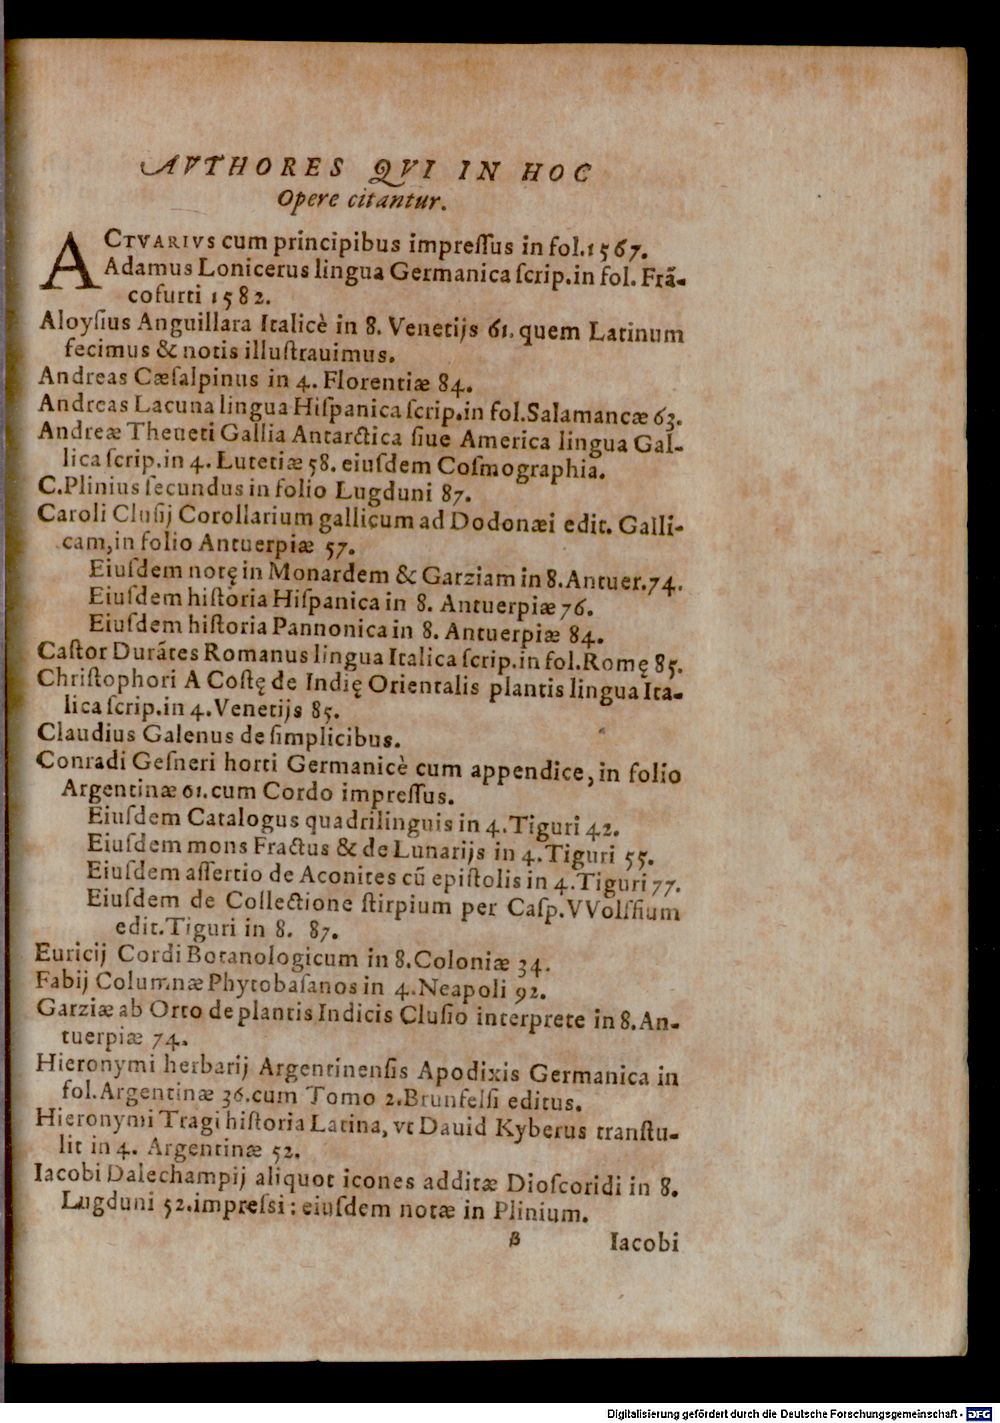 AVTHORES QVI IN HOC
Opere citantur.
ACTVARIVS cum principibus impreſſus in fol. 1567.
Adamus Lonicerus lingua Germanica ſcrip. in fol. Frā-
cofurti 1582.
Aloyſius Anguillara Italicè in 8. Venetijs 61. quem Latinum
fecimus & notis illuſtrauimus.
Andreas Cæſalpinus in 4. Florentiæ 84.
Andreas Lacuna lingua Hiſpanica ſcrip. in fol. Salamancæ 63.
Andreæ Theueti Gallia Antarctica ſiue America lingua Gal-
lica ſcrip. in 4. Lutetiæ 58. eiuſdem Coſmographia.
C. Plinius ſecundus in folio Lugduni 87.
Caroli Cluſij Corollarium gallicum ad Dodonæi edit. Galli-
cam, in folio Antuerpiæ 57.
Eiuſdem notę in Monardem & Garziam in 8. Antuer. 74.
Eiuſdem hiſtoria Hiſpanica in 8. Antuerpiæ 76.
Eiuſdem hiſtoria Pannonica in 8. Antuerpiæ 84.
Caſtor Durātes Romanus lingua Italica ſcrip. in fol. Romę 85.
Chriſtophori A Coſtę de Indię Orientalis plantis lingua Ita-
lica ſcrip. in 4. Venetijs 85.
Claudius Galenus de ſimplicibus.
Conradi Geſneri horti Germanicè cum appendice, in folio
Argentinæ 61. cum Cordo impreſſus.
Eiuſdem Catalogus quadrilinguis in 4. Tiguri 42.
Eiuſdem mons Fractus & de Lunarijs in 4. Tiguri 55.
Eiuſdem aſſertio de Aconites cū epiſtolis in 4. Tiguri 77.
Eiuſdem de Collectione ſtirpium per Caſp. VVolfſium
edit. Tiguri in 8. 87.
Euricij Cordi Botanologicum in 8. Coloniæ 34.
Fabij Columnæ Phytobaſanos in 4. Neapoli 92.
Garziæ ab Orto de plantis Indicis Cluſio interprete in 8. An-
tuerpiæ 74.
Hieronymi herbarij Argentinenſis Apodixis Germanica in
fol. Argentinæ 36. cum Tomo 2. Brunfelſi editus.
Hieronymi Tragi hiſtoria Latina, vt Dauid Kyberus tranſtu-
lit in 4. Argentinæ 52.
Iacobi Dalechampij aliquot icones additæ Dioſcoridi in 8.
Lugduni 52. impreſsi : eiuſdem notæ in Plinium.
β Iacobi
Digitalisierung gefördert durch die Deutsche Forschungsgemeinschaft - DFG